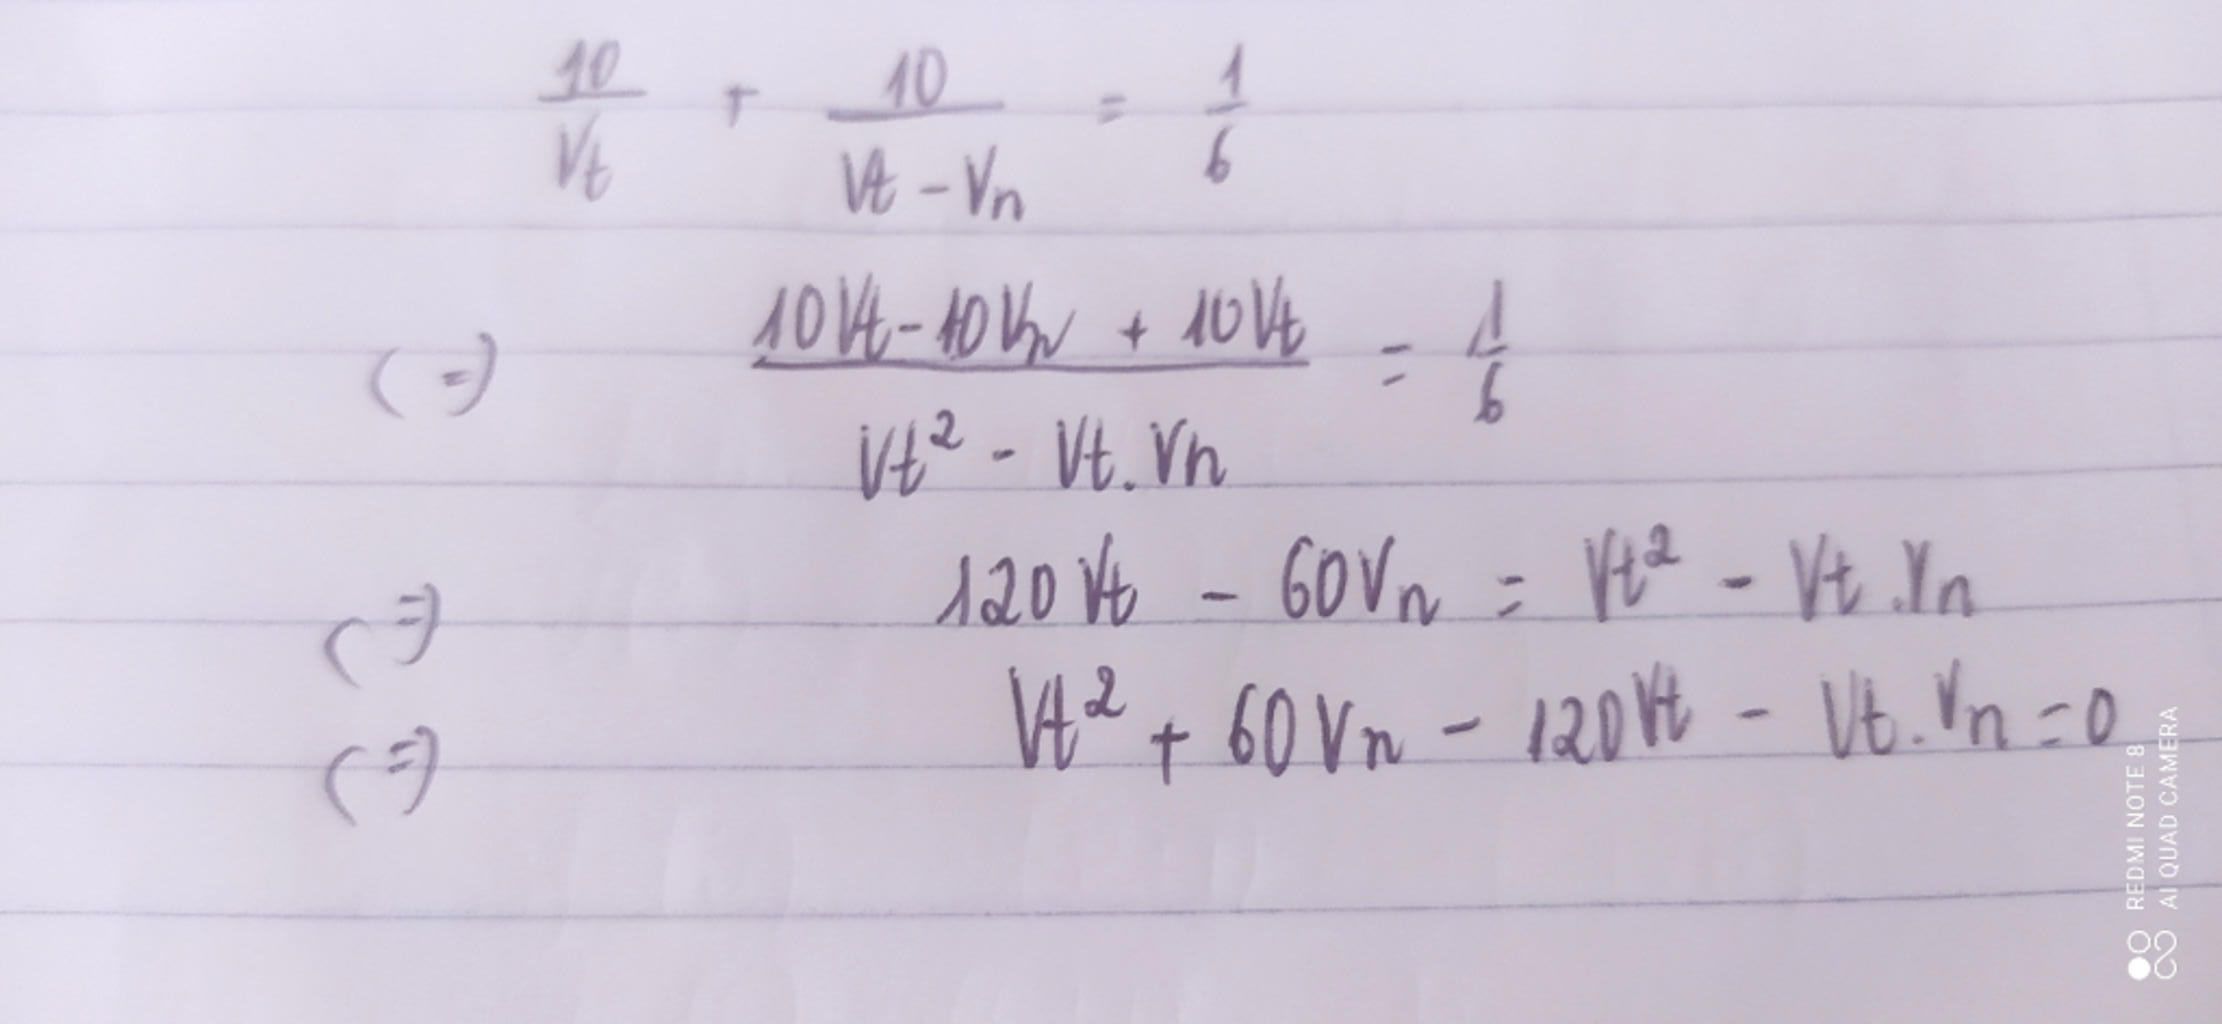 10/Vt + 10/(Vt - Vn) = 1/6
(=) (10Vt - 10Vn + 10Vt)/(Vt² - Vt.Vn) = 1/6
(=) 120Vt - 60Vn = Vt² - Vt.Vn
(=) Vt² + 60Vn - 120Vt - Vt.Vn = 0
REDMI NOTE 8
AI QUAD CAMERA